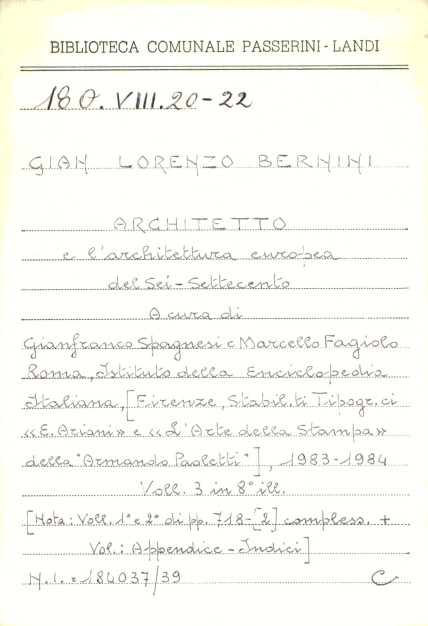 BIBLIOTECA COMUNALE PASSERINI - LANDI
180. VIII. 20-22
GIAN LORENZO BERNINI
ARCHITETTO
e l'architettura europea
del Sei-Settecento
A cura di
Gianfranco Spagnesi e Marcello Fagiolo
Roma, Istituto della Enciclopedia
Italiana, [Firenze, Stabil.ti Tipogr.ci
«E. Ariani» e «L'Arte della Stampa»
della "Armando Paoletti"], 1983-1984
Voll. 3 in 8° ill.
[Nota: Voll. 1° e 2° di pp. 718-[2] compless. +
Vol.: Appendice - Indici]
N.I. = 184037/39 C